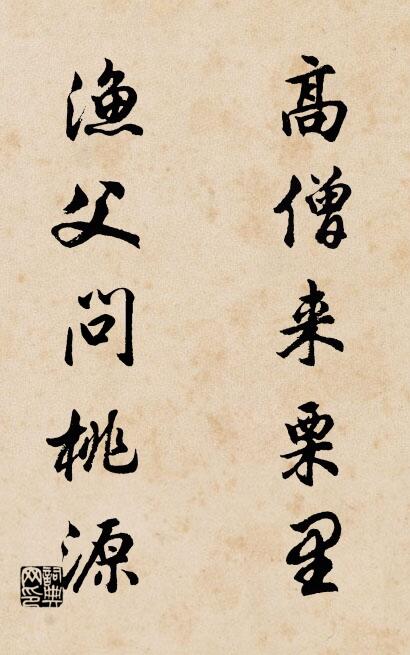 高僧来栗里
渔父问桃源